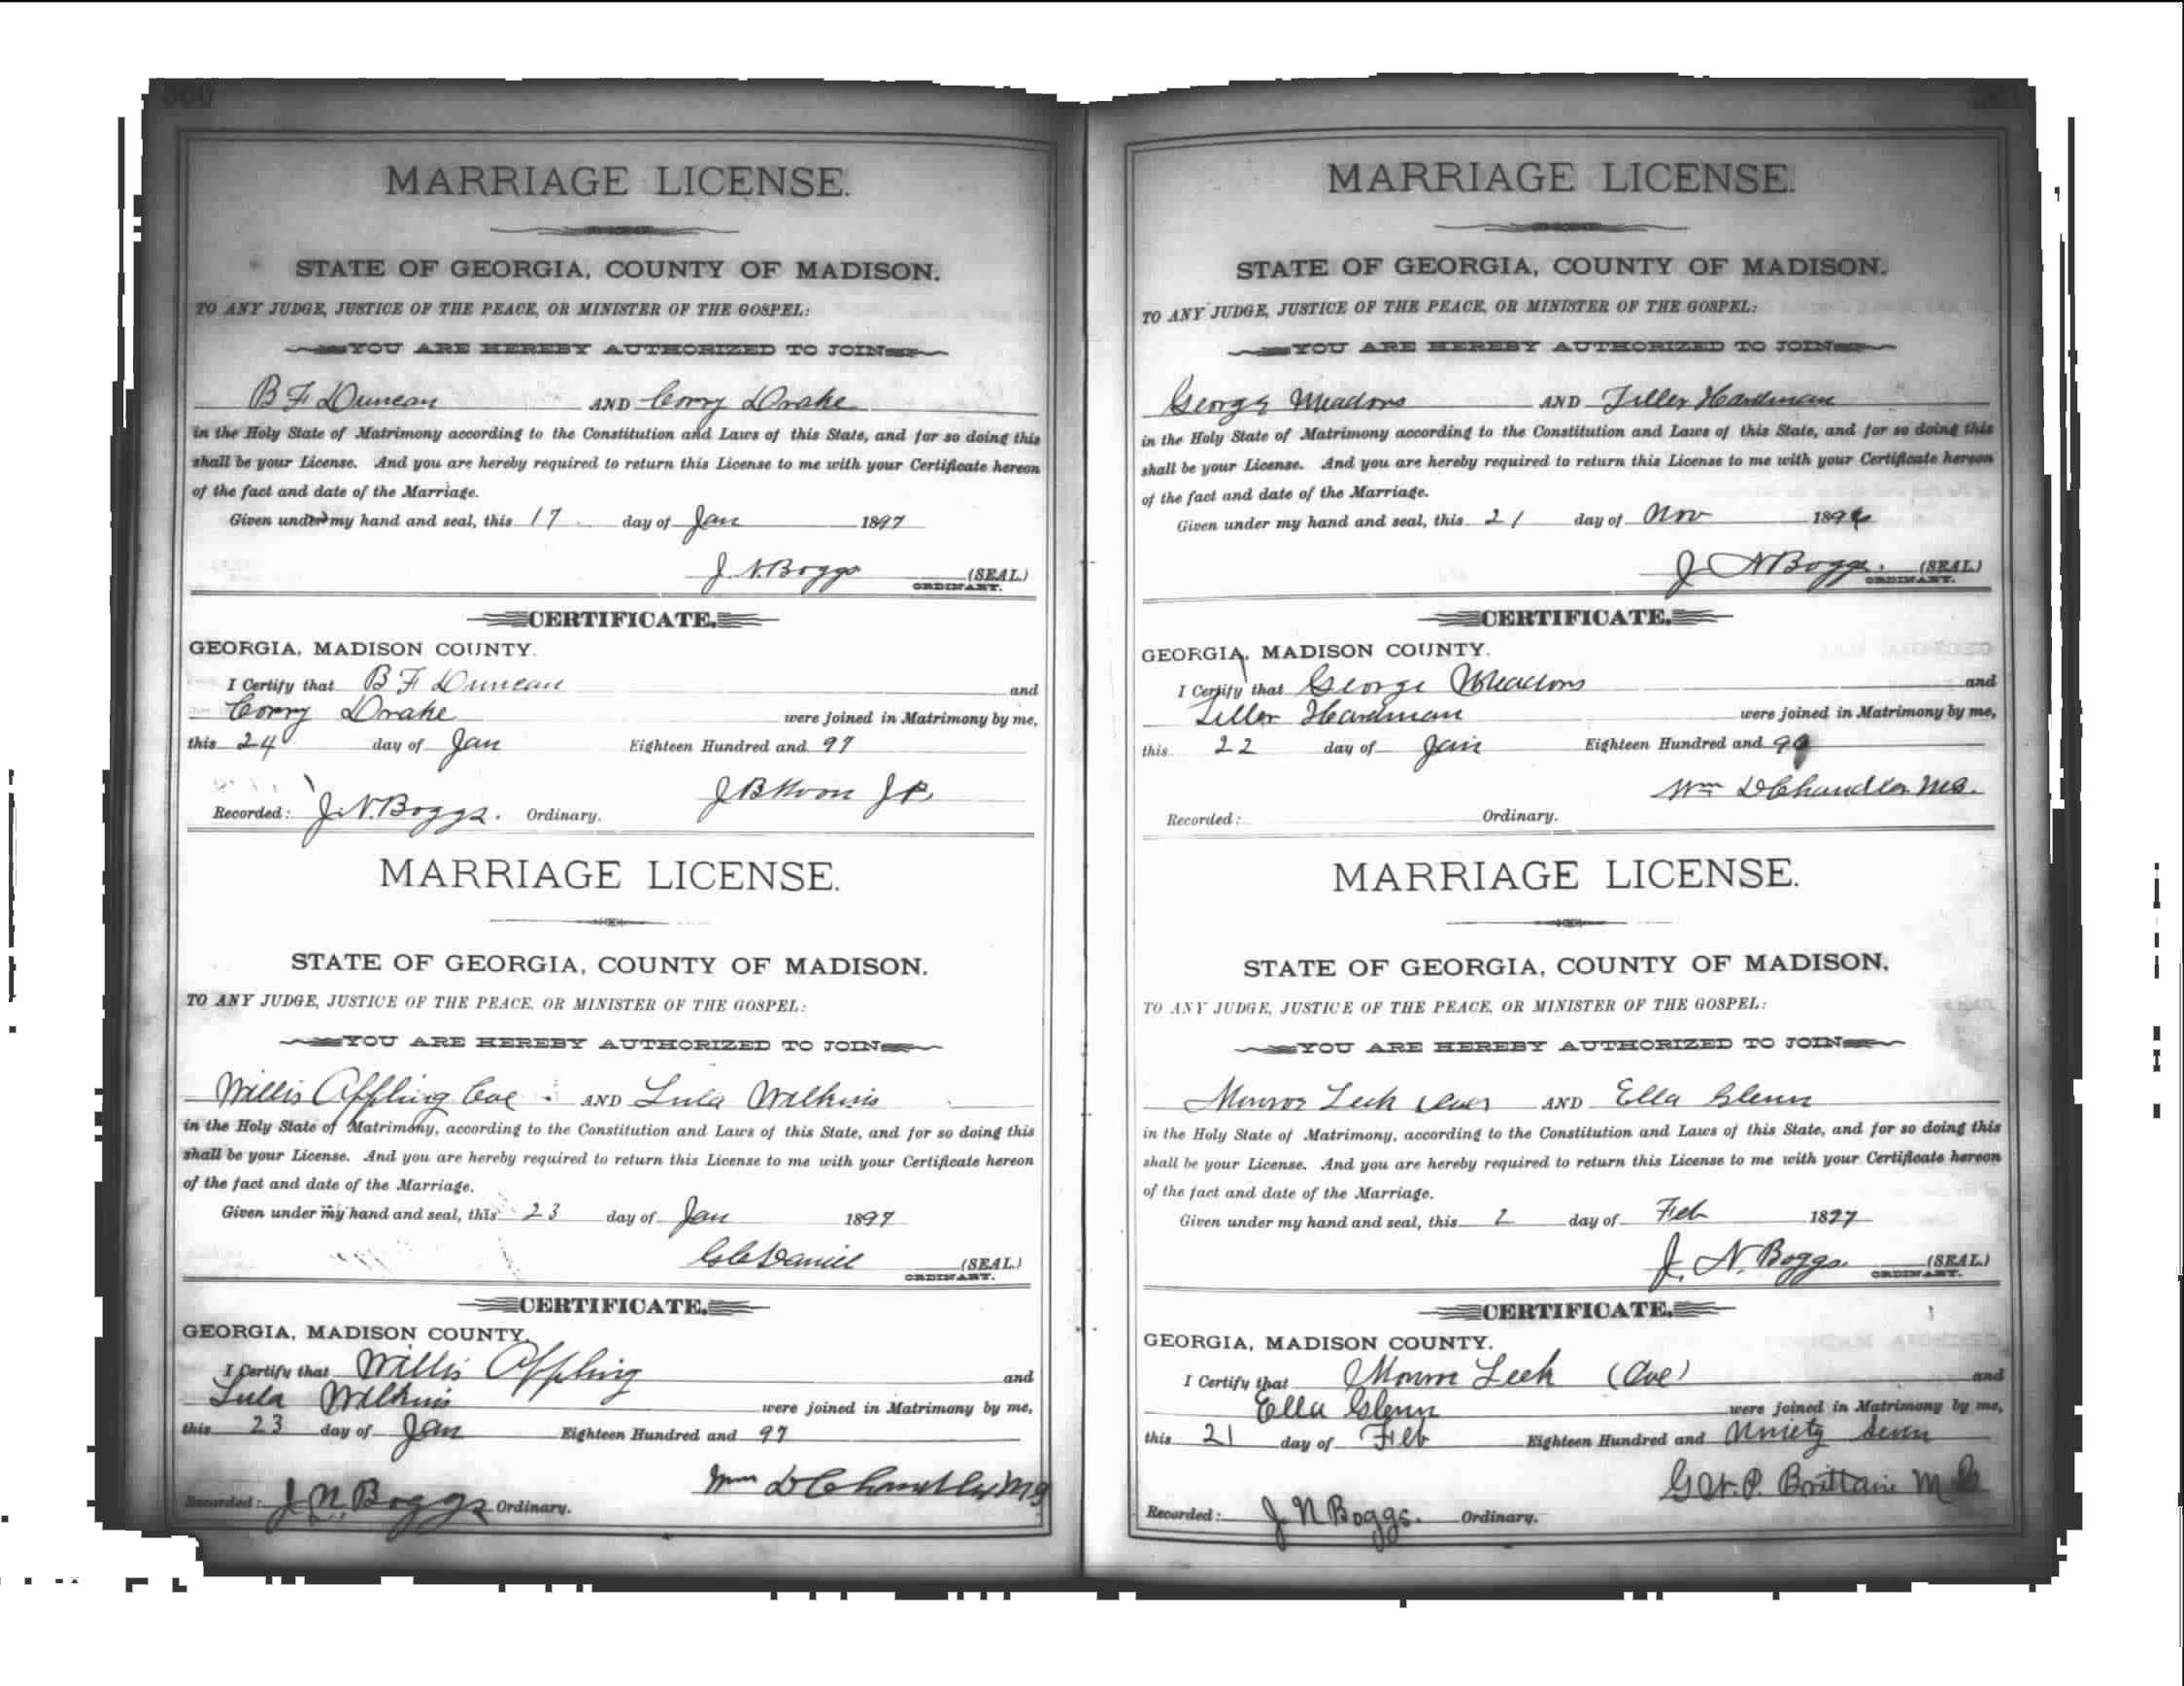 MARRIAGE LICENSE.
STATE OF GEORGIA, COUNTY OF MADISON.
TO ANY JUDGE, JUSTICE OF THE PEACE, OR MINISTER OF THE GOSPEL:
YOU ARE HEREBY AUTHORIZED TO JOIN
B F Duncan AND Corry Drake
in the Holy State of Matrimony according to the Constitution and Laws of this State, and for so doing this
shall be your License. And you are hereby required to return this License to me with your Certificate hereon
of the fact and date of the Marriage.
Given under my hand and seal, this 17 day of Jan 1897
J. N. Boggs (SEAL.)
ORDINARY.
CERTIFICATE.
GEORGIA, MADISON COUNTY.
I Certify that B F Duncan and
Corry Drake were joined in Matrimony by me,
this 24 day of Jan Eighteen Hundred and 97
J B Moon J P.
Recorded: J. N. Boggs. Ordinary.
MARRIAGE LICENSE.
STATE OF GEORGIA, COUNTY OF MADISON.
TO ANY JUDGE, JUSTICE OF THE PEACE, OR MINISTER OF THE GOSPEL:
YOU ARE HEREBY AUTHORIZED TO JOIN
Willis Appling Col AND Lula Wilkins
in the Holy State of Matrimony, according to the Constitution and Laws of this State, and for so doing this
shall be your License. And you are hereby required to return this License to me with your Certificate hereon
of the fact and date of the Marriage.
Given under my hand and seal, this 23 day of Jan 1897
Daniel (SEAL.)
ORDINARY.
CERTIFICATE.
GEORGIA, MADISON COUNTY.
I Certify that Willis Appling and
Lula Wilkins were joined in Matrimony by me,
this 23 day of Jan Eighteen Hundred and 97
Wm D Chandler M G
Recorded: J N Boggs Ordinary.
MARRIAGE LICENSE.
STATE OF GEORGIA, COUNTY OF MADISON.
TO ANY JUDGE, JUSTICE OF THE PEACE, OR MINISTER OF THE GOSPEL:
YOU ARE HEREBY AUTHORIZED TO JOIN
George Meadors AND Tiller Hardman
in the Holy State of Matrimony according to the Constitution and Laws of this State, and for so doing this
shall be your License. And you are hereby required to return this License to me with your Certificate hereon
of the fact and date of the Marriage.
Given under my hand and seal, this 21 day of Nov 1896
J N Boggs. (SEAL.)
ORDINARY.
CERTIFICATE.
GEORGIA, MADISON COUNTY.
I Certify that George Meadors and
Tiller Hardman were joined in Matrimony by me,
this 22 day of Jan Eighteen Hundred and
Wm D Chandler M G.
Recorded: Ordinary.
MARRIAGE LICENSE.
STATE OF GEORGIA, COUNTY OF MADISON.
TO ANY JUDGE, JUSTICE OF THE PEACE, OR MINISTER OF THE GOSPEL:
YOU ARE HEREBY AUTHORIZED TO JOIN
Monroe Leek AND Ella Glenn
in the Holy State of Matrimony, according to the Constitution and Laws of this State, and for so doing this
shall be your License. And you are hereby required to return this License to me with your Certificate hereon
of the fact and date of the Marriage.
Given under my hand and seal, this 2 day of Feb 1897
J. N. Boggs. (SEAL.)
ORDINARY.
CERTIFICATE.
GEORGIA, MADISON COUNTY.
I Certify that Monroe Leek (Col) and
Ella Glenn were joined in Matrimony by me,
this 21 day of Feb Eighteen Hundred and Ninety Seven
G W. P. Brittain M G
Recorded: J N Boggs. Ordinary.